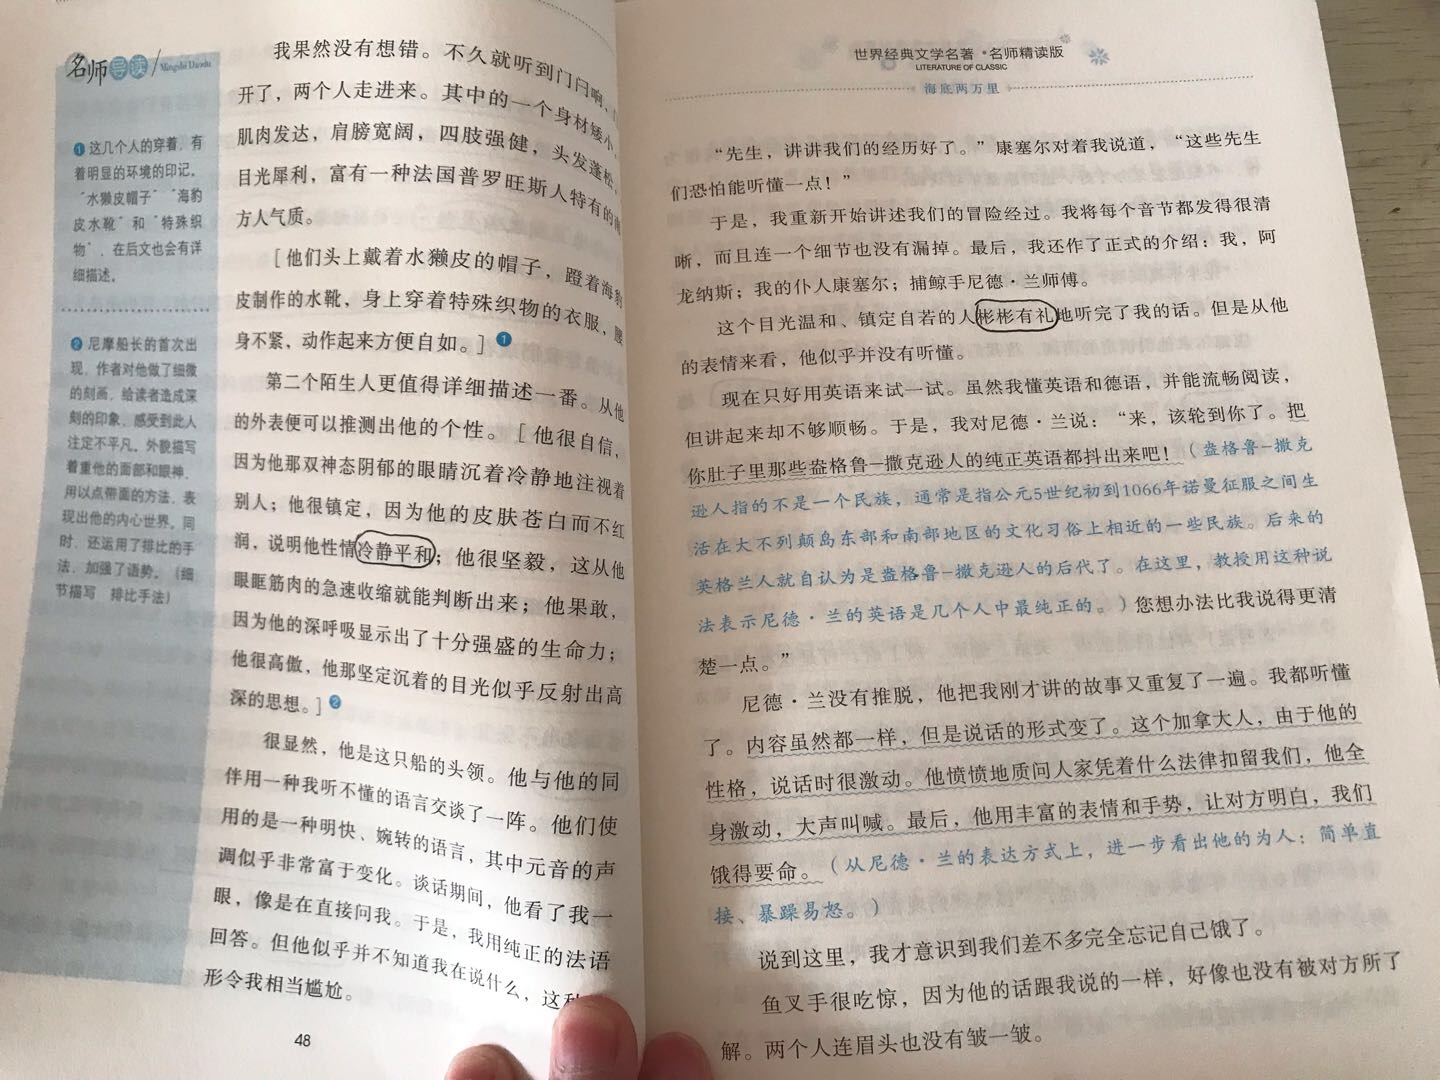 名师导读 Mingshi Daodu
❶ 这几个人的穿着，有
着明显的环境的印记。
“水獭皮帽子”“海豹
皮水靴”和“特殊织
物”，在后文也会有详
细描述。
❷ 尼摩船长的首次出
现，作者对他做了细微
的刻画，给读者造成深
刻的印象，感受到此人
注定不平凡。外貌描写
着重他的面部和眼神，
用以点带面的方法，表
现出他的内心世界。同
时，还运用了排比的手
法，加强了语势。（细
节描写 排比手法）
我果然没有想错。不久就听到门闩响、
开了，两个人走进来。其中的一个身材矮小，
肌肉发达，肩膀宽阔，四肢强健，头发蓬松，
目光犀利，富有一种法国普罗旺斯人特有的南
方人气质。
[他们头上戴着水獭皮的帽子，蹬着海豹
皮制作的水靴，身上穿着特殊织物的衣服，腰
身不紧，动作起来方便自如。]❶
第二个陌生人更值得详细描述一番。从他
的外表便可以推测出他的个性。[他很自信，
因为他那双神态阴郁的眼睛沉着冷静地注视着
别人；他很镇定，因为他的皮肤苍白而不红
润，说明他性情冷静平和；他很坚毅，这从他
眼眶筋肉的急速收缩就能判断出来；他果敢，
因为他的深呼吸显示出了十分强盛的生命力；
他很高傲，他那坚定沉着的目光似乎反射出高
深的思想。]❷
很显然，他是这只船的头领。他与他的同
伴用一种我听不懂的语言交谈了一阵。他们使
用的是一种明快、婉转的语言，其中元音的声
调似乎非常富于变化。谈话期间，他看了我一
眼，像是在直接问我。于是，我用纯正的法语
回答。但他似乎并不知道我在说什么，这种
形令我相当尴尬。
48
世界经典文学名著·名师精读版
LITERATURE OF CLASSIC
海底两万里
“先生，讲讲我们的经历好了。”康塞尔对着我说道，“这些先生
们恐怕能听懂一点！”
于是，我重新开始讲述我们的冒险经过。我将每个音节都发得很清
晰，而且连一个细节也没有漏掉。最后，我还作了正式的介绍：我，阿
龙纳斯；我的仆人康塞尔；捕鲸手尼德·兰师傅。
这个目光温和、镇定自若的人彬彬有礼地听完了我的话。但是从他
的表情来看，他似乎并没有听懂。
现在只好用英语来试一试。虽然我懂英语和德语，并能流畅阅读，
但讲起来却不够顺畅。于是，我对尼德·兰说：“来，该轮到你了。把
你肚子里那些盎格鲁-撒克逊人的纯正英语都抖出来吧！（盎格鲁-撒克
逊人指的不是一个民族，通常是指公元5世纪初到1066年诺曼征服之间生
活在大不列颠岛东部和南部地区的文化习俗上相近的一些民族。后来的
英格兰人就自认为是盎格鲁-撒克逊人的后代了。在这里，教授用这种说
法表示尼德·兰的英语是几个人中最纯正的。）您想办法比我说得更清
楚一点。”
尼德·兰没有推脱，他把我刚才讲的故事又重复了一遍。我都听懂
了。内容虽然都一样，但是说话的形式变了。这个加拿大人，由于他的
性格，说话时很激动。他愤愤地质问人家凭着什么法律扣留我们，他全
身激动，大声叫喊。最后，他用丰富的表情和手势，让对方明白，我们
饿得要命。（从尼德·兰的表达方式上，进一步看出他的为人：简单直
接、暴躁易怒。）
说到这里，我才意识到我们差不多完全忘记自己饿了。
鱼叉手很吃惊，因为他的话跟我说的一样，好像也没有被对方所了
解。两个人连眉头也没有皱一皱。